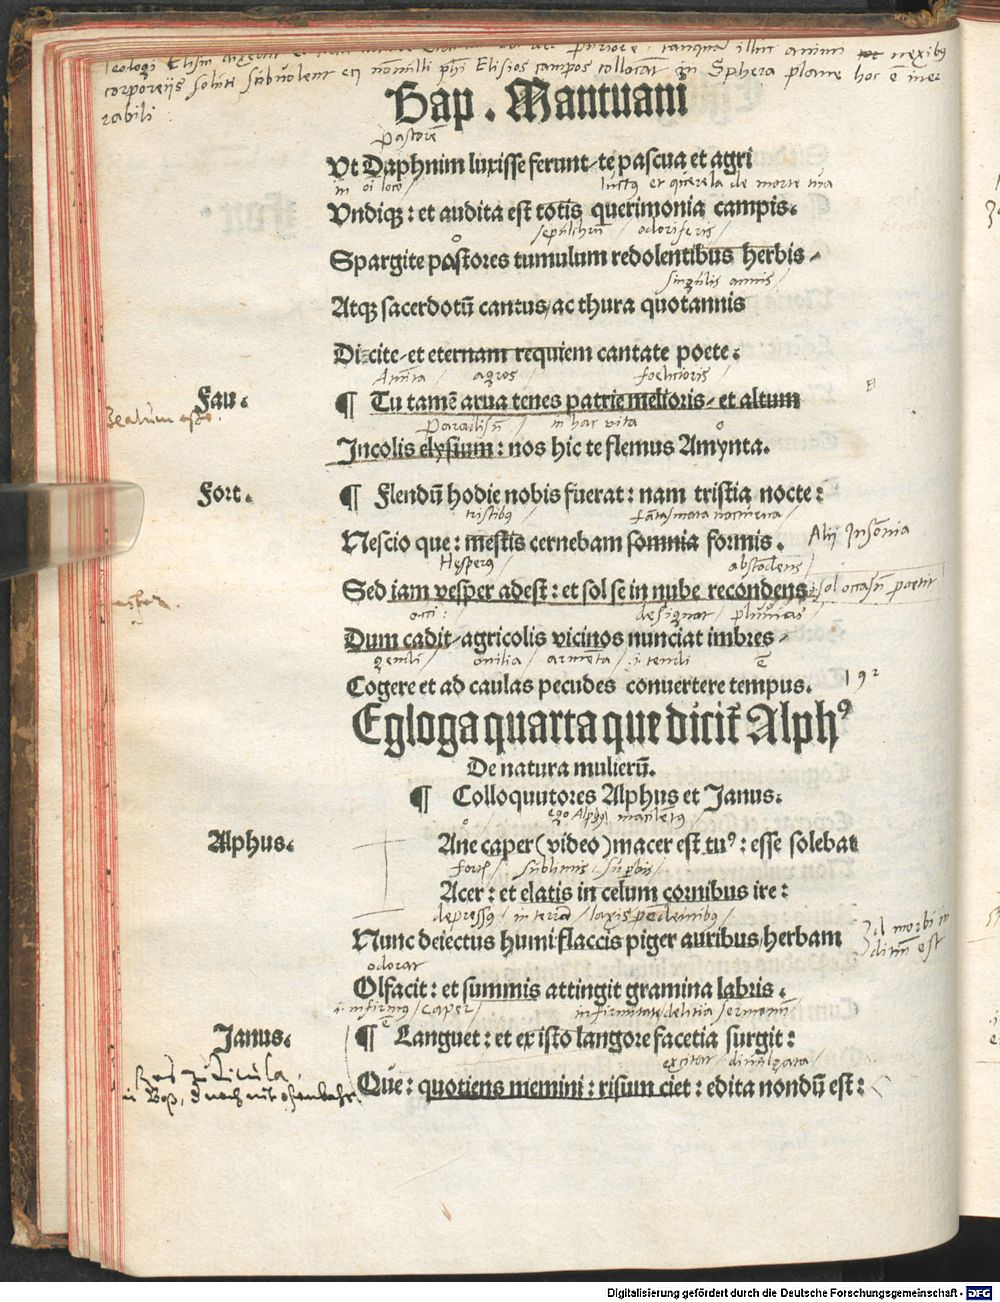 corporeijs soluti
Bap. Mantuani
pastorē
Vt Daphnim luxisse ferunt te pascua et agri
in oī loco luctꝰ et querela de morte tua
Vndiqꝫ: et audita est totis querimonia campis.
sepulchrū odoriferis
o
Spargite pastores tumulum redolentibus herbis
singulis annis
Atqꝫ sacerdotū cantus/ac thura quotannis
Dicite/et eternam requiem cantate poete.
Amīta agros foelicioris
Fau. ¶ Tu tamē arua tenes patrie melioris/et altum
Paradisū in hac vita o
Incolis elysium: nos hic te flemus Amynta.
Fort. ¶ Flendū hodie nobis fuerat: nam tristia nocte:
tristibꝰ fātasmata nocturna
Nescio que: mestis cernebam somnia formis. Alij Insōnia
Hesperꝰ abscōdens
Sed iam vesper adest: et sol se in nube recondens sol occasū
designat pluuias
Dum cadit/agricolis vicinos nunciat imbres/
ouilia armēta ē
Cogere et ad caulas pecudes conuertere tempus. 192
Egloga quarta que dicit̄ Alphꝰ
De natura mulierū.
¶ Colloquutores Alphus et Janus.
o ego Alphꝰ macilētꝰ
Alphus. Ane caper (video) macer est tuꝰ: esse solebat
sublimis supbis
Acer: et elatis in celum cornibus ire:
depressꝰ in terrā laxis
Nunc deiectus humi flaccis piger auribus/herbam
odorat
Olfacit: et summis attingit gramina labris.
i. infirmus caper infirmitate
Janus. ¶ Languet: et ex isto langore facetia surgit:
excitat diuulgata
Que: quotiens memini: risum ciet: edita nondū est:
Digitalisierung gefördert durch die Deutsche Forschungsgemeinschaft - DFG